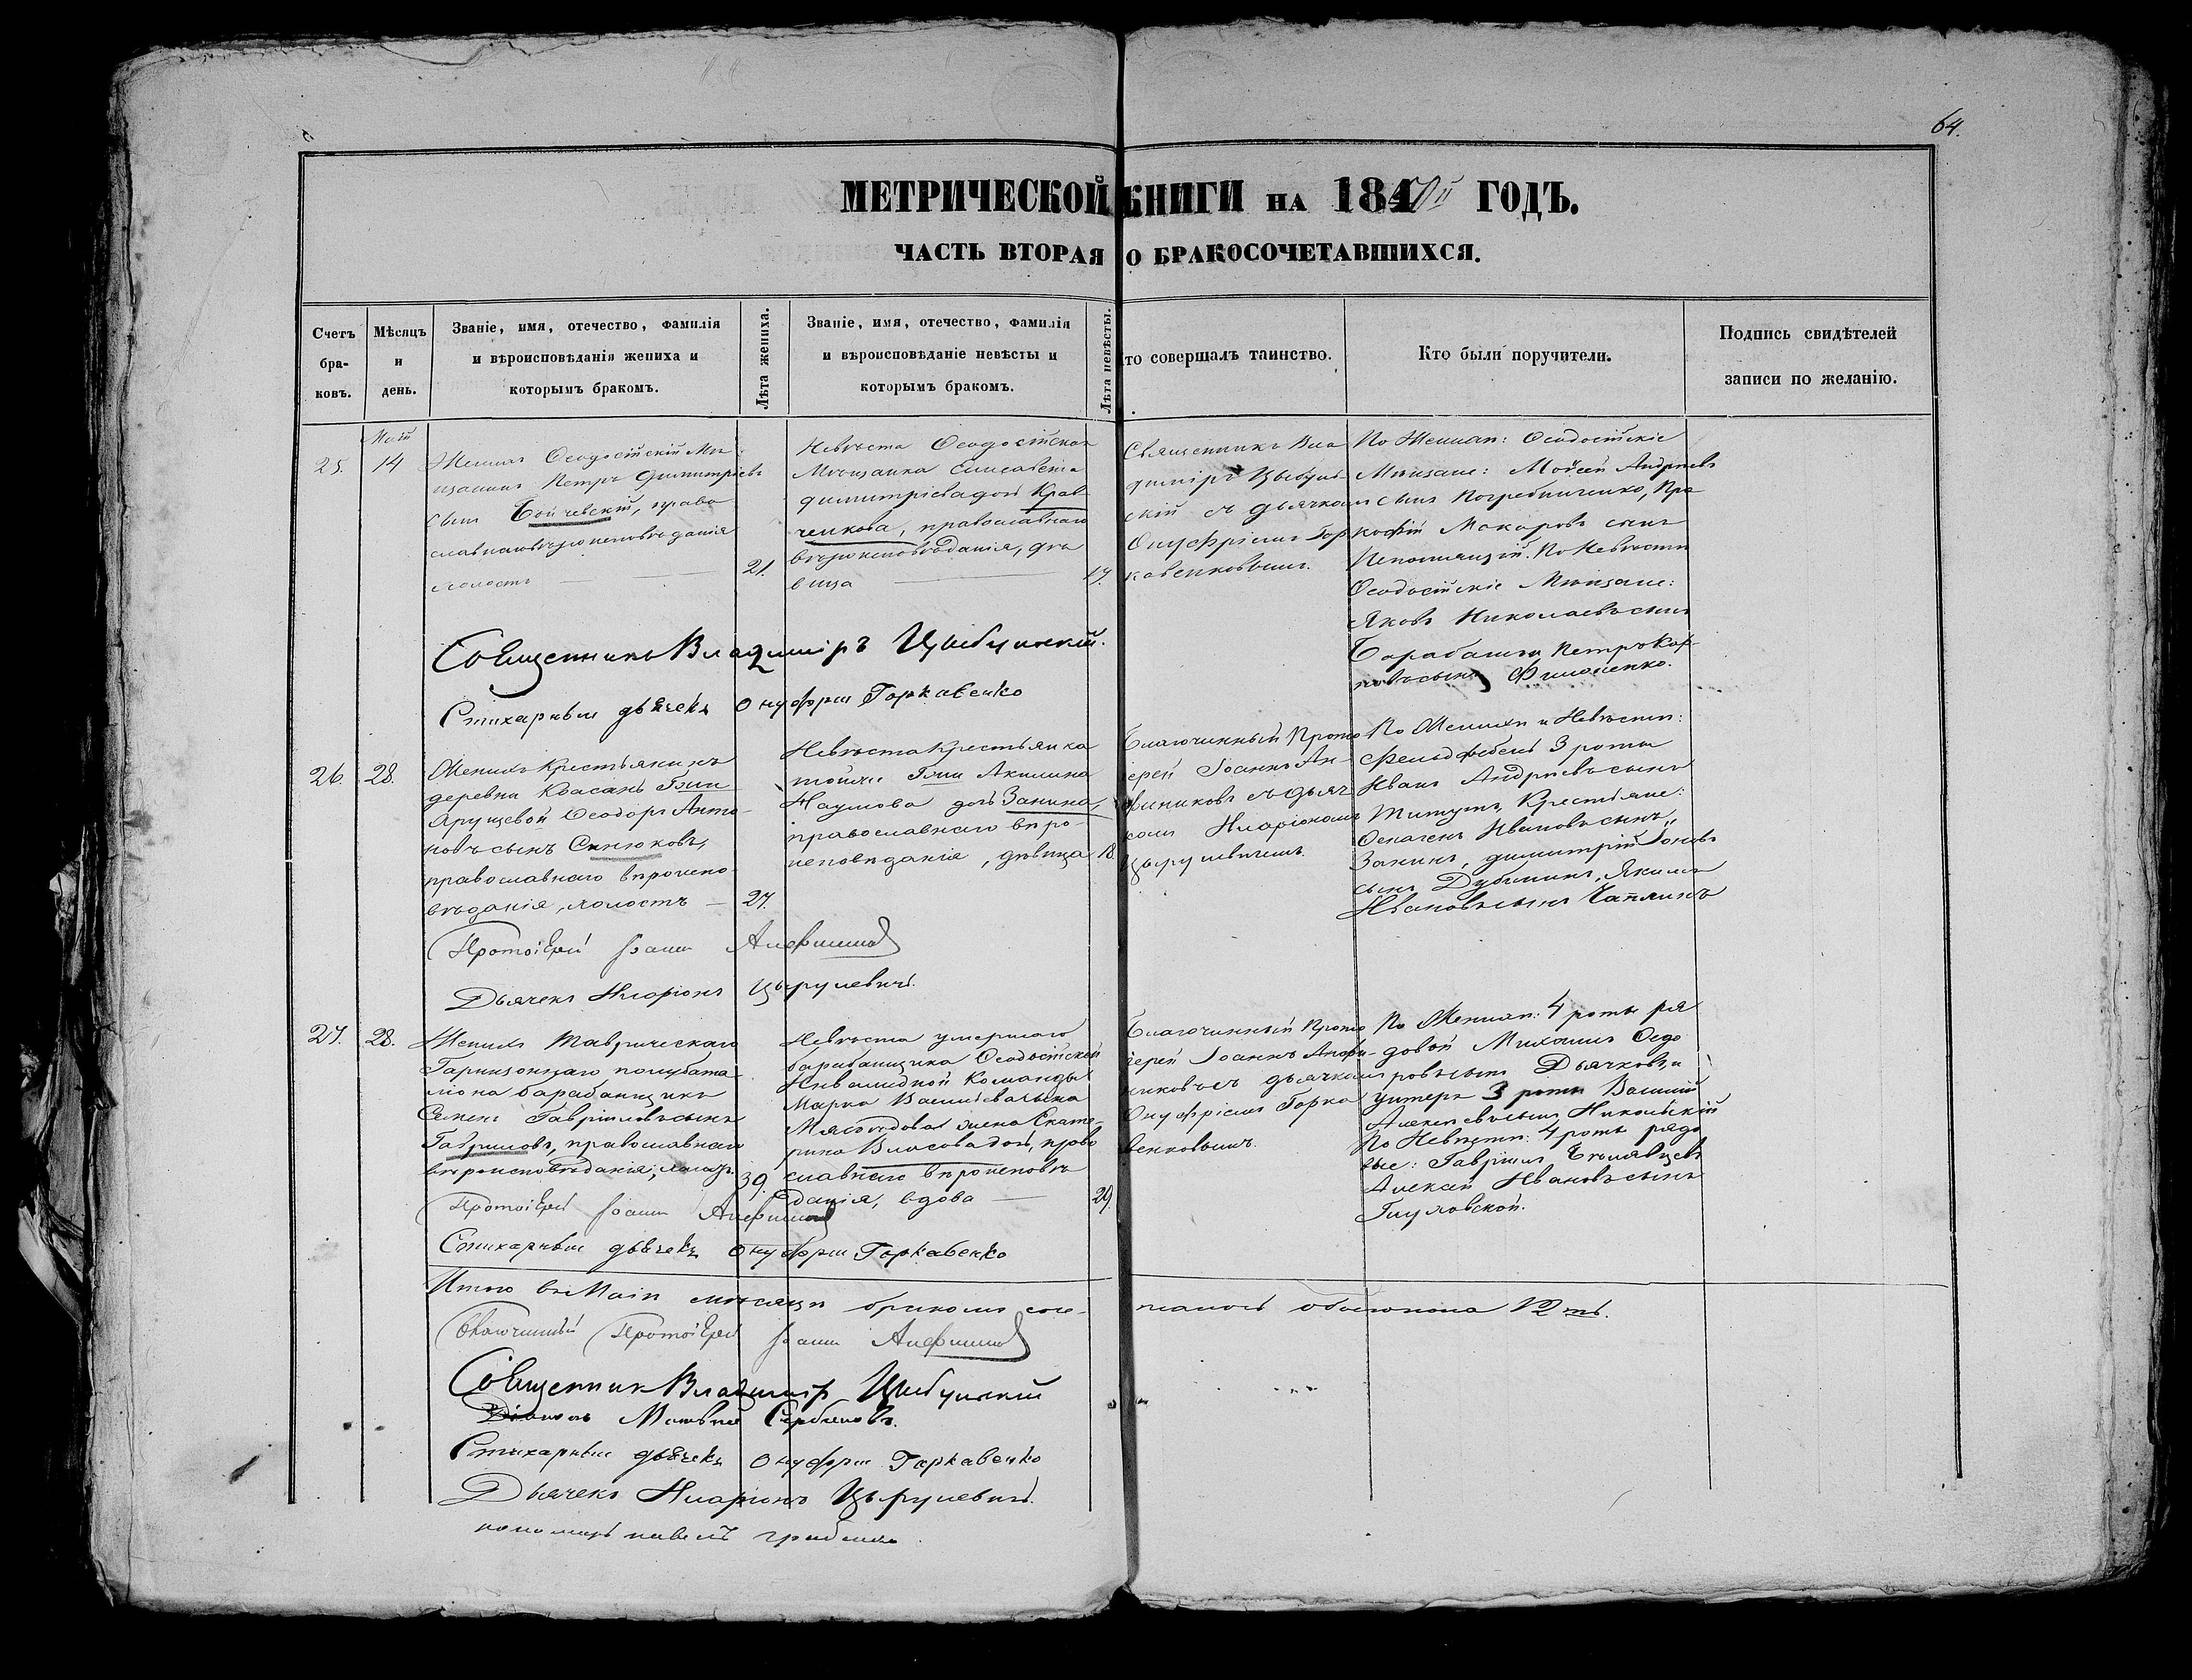 64.
МЕТРИЧЕСКОЙ КНИГИ НА 184 ГОДЪ.
ЧАСТЬ ВТОРАЯ О БРАКОСОЧЕТАВШИХСЯ.
Счетъ бра-ковъ.
Мѣсяцъ и день.
Званіе, имя, отечество, фамилія
и вѣроисповѣданія жениха и
которымъ бракомъ.
Лѣта жениха.
Званіе, имя, отечество, фамилія
и вѣроисповѣданіе невѣсты и
которымъ бракомъ.
Лѣта невѣсты.
то совершалъ таинство.
Кто были поручители.
Подпись свидѣтелей
записи по желанію.
25.
Май
14
Женихъ Ѳеодосійскій Мѣ-
щанинъ Петръ Димитріевъ
сынъ православнаго вѣроисповѣданія
холостъ
21.
Невѣста Ѳеодосійская
Мѣщанка Елисавета
Димитріева дочь Крав-
ченкова, православнаго
вѣроисповѣданія, дѣ-
вица
17.
Священникъ Вла
димiръ Цыбуль
скій съ дьячкомъ
Онуфріемъ Гор
кавенковымъ.
По Женихѣ: Ѳеодосійскіе
Мѣщане: Мойсей Андреевъ
сынъ Погребниченко, Про
кофій Макаровъ сынъ
По Невѣстѣ
Ѳеодосійскіе Мѣщане:
Яковъ Николаевъ сынъ
Барабашъ и Петръ Кар-
повъ сынъ Филоненко.
Священникъ Владимiръ Цыбульскій.
Стихарный дьячекъ Онуфрій Горкавенко
26.
28.
Женихъ Крестьянинъ
деревни Коасанъ Гжи
Арущевой Ѳеодоръ Анто-
новъ сынъ Сенюковъ,
православнаго вѣроиспо-
вѣданія, холостъ
27.
Невѣста Крестьянка
тойже Гжи Акилина
Наумова дочь Занина,
православнаго вѣро-
исповѣданія, дѣвица
18.
Благочинный Прото
іерей Іоаннъ Ан-
фиников съ дьяч
комъ Иларіономъ
Цырулевичемъ.
По Женихѣ и Невѣстѣ:
Фельдфебель 3 роты
Иванъ Андреевъ сынъ
Титутъ, Крестьяне:
Ивановъ сынъ
Занинъ, Димитрій Іоновъ
сынъ Дубининъ, Якимъ
Ивановъ сынъ Чаплинъ
Протоіерей Іоаннъ Анфиников
Дьячекъ Иларіонъ Цырулевичъ.
27.
28.
Женихъ Таврическаго
Гарнизоннаго полубата
ліона барабанщикъ
Семенъ Гавріиловъ сынъ
Гавриловъ, православнаго
вѣроисповѣданія, холостъ.
39.
Невѣста умершаго
барабанщика Ѳеодосійской
Инвалидной Команды
Марка Васильева сына
Мясоѣдова жена Екате-
рина Власова дочь, право
славнаго вѣроисповѣ
данія, вдова
29.
Благочинный Прото
іерей Іоаннъ Анфи-
никовъ съ дьячкомъ
Онуфріемъ Горка
венковымъ.
По Женихѣ: 4 роты ря
довой Михаилъ Ѳедо
ровъ сынъ Дьячковъ, и
Унтеръ 3 роты Василій
Алексѣевъ сынъ Никольскій
По Невѣстѣ: 4 роты рядо
вые: Гавріилъ
Алексѣй Ивановъ сынъ
Глуховской.
Протоіерей Іоаннъ Анфиников
Стихарный дьячекъ Онуфрій Горкавенко
Итого въ Маіѣ мѣсяцѣ бракомъ соче- талось обоего пола 12ть.
Благочинный Протоіерей Іоаннъ Анфиников
Священникъ Владимiръ Цыбульскій
Діаконъ Матвѣй Сербиновъ.
Стихарный дьячекъ Онуфрій Горкавенко
Дьячекъ Иларіонъ Цырулевичъ.
пономарь павелъ